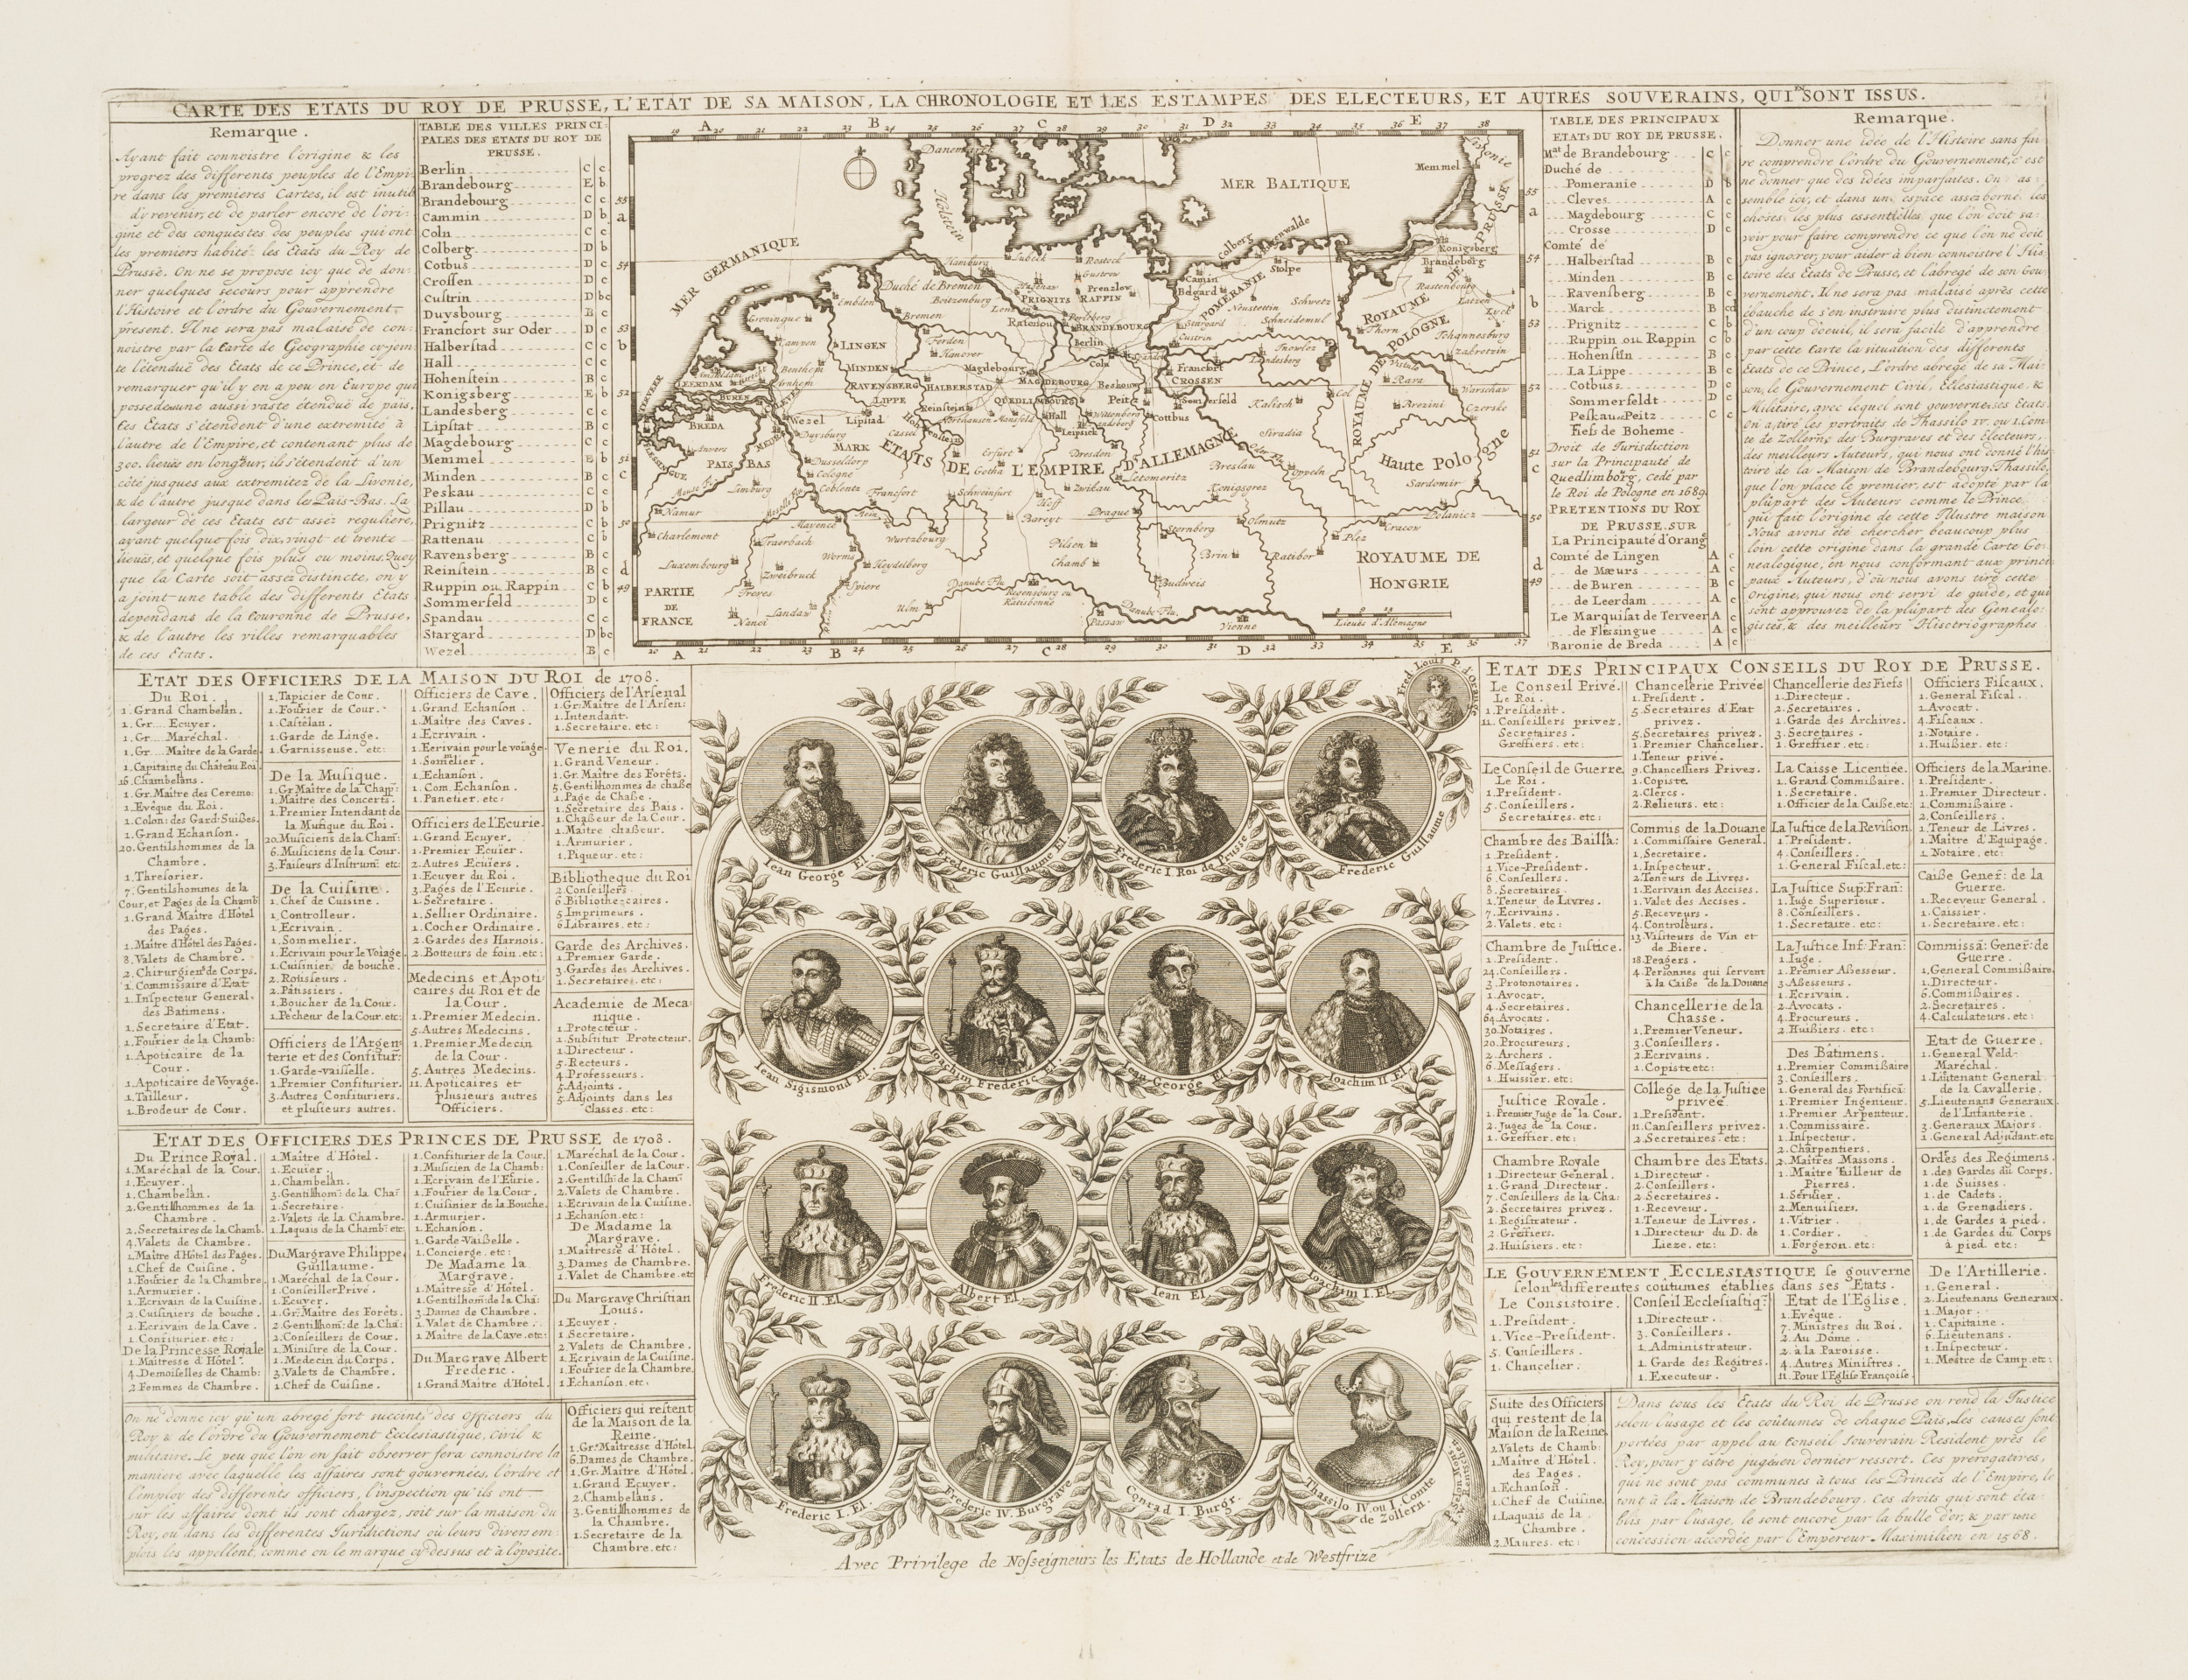 CARTE DES ETATS DU ROY DE PRUSSE, L'ETAT DE SA MAISON, LA CHRONOLOGIE ET LES ESTAMPES DES ELECTEURS, ET AUTRES SOUVERAINS, QUI EN SONT ISSUS.
Remarque.
Ayant fait connoistre l'origine & les
progrez des differents peuples de l'Empi-
re dans les premieres Cartes, il est inutil
d'y revenir, et de parler encore de l'ori-
gine et des conquestes des peuples qui ont
les premiers habité les Etats du Roy de
Prusse. On ne se propose icy que de don-
ner quelques secours pour apprendre
l'Histoire et l'ordre du Gouvernement
present. Il ne sera pas malaisé de con-
noistre par la Carte de Geographie cy-join-
te l'étenduë des Etats de ce Prince, et de
remarquer qu'il y en a peu en Europe qui
possede une aussi vaste étenduë de païs.
Ces Etats s'étendent d'une extremité à
l'autre de l'Empire, et contenant plus de
300. lieuës en longueur, ils s'étendent d'un
côté jusques aux extremitez de la Livonie,
& de l'autre jusque dans les Païs-Bas. La
largeur de ces Etats est assez reguliere,
ayant quelque fois dix, vingt et trente
lieuës, et quelque fois plus ou moins. Quoy
que la Carte soit assez distincte, on y
a joint une table des differents Etats
dependans de la Couronne de Prusse,
& de l'autre les villes remarquables
de ces Etats.
TABLE DES VILLES PRINCI-
PALES DES ETATS DU ROY DE
PRUSSE.
Berlin C c
Brandebourg E b
Brandebourg C c
Cammin D b
Coln C c
Colberg D b
Cotbus D c
Crossen D c
Custrin D bc
Duysbourg B c
Francfort sur Oder D c
Halberstad C c
Hall C c
Hohenstein B c
Konigsberg E b
Landesberg C c
Lipstat B c
Magdebourg C c
Memmel E b
Minden B c
Peskau C c
Pillau D b
Prignitz C b
Rattenau C b
Ravensberg B c
Reinstein B c
Ruppin ou Rappin C b
Sommerfeld D c
Spandau C c
Stargard D bc
Wezel B c
MER GERMANIQUE
MER BALTIQUE
Danemarck
Holstein
Livonie
PRUSSE
Memmel
Konigsberg
Brandeborg
Rastenbourg
Lyck
Iohannesburg
Colberg
Stolpe
Camin
Belgard
POMERANIE
Neustettin
Stargard
Schneidemul
Custrin
Landesberg
Lubeck
Rostock
Gustrow
Hamburg
Duché de Bremen
Boitzenburg
PRIGNITS
RAPPIN
Prenzlow
Perleberg
BRANDEBOURG
Ratenou
Berlin
Coln
Francfort
CROSSEN
Beeskow
Peitz
Cottbus
Somerfeld
Embden
Groningue
Bremen
Ferden
Hanover
LINGEN
MINDEN
RAVENSBERG
LIPPE
HALBERSTAD
Magdebourg
MAGDEBOURG
QUEDLIMBOURG
Reinstein
Hohenstein
Northausen
Mansfeld
Hall
Wittenberg
Leipsick
Campen
Benthem
Arnhem
LEERDAM
BUREN
BREDA
Anvers
Wezel
Lipstad
Duysburg
MARK
Dusseldorp
Cologne
Coblentz
PAIS BAS
Limburg
Namur
Charlemont
Luxembourg
Treves
Traerbach
Mayence
Worms
Francfort
Schweinfurt
Wurtzbourg
Heydelberg
Spiere
Landau
Zweibruck
Nanci
Ulm
Cassel
Erfurt
Gotha
Dresden
Zwikau
Hoff
Bareyt
Letomeritz
Prague
Pilsen
Chamb
Danube Flu.
Regensburg ou
Ratisbonne
Passaw
Danube Flu.
Vienne
Budweis
Brin
Sternberg
Olmutz
Ratibor
Konigsgrez
Breslau
Oppeln
Plez
Cracow
Polaniez
Sardomir
Siradia
Kalisch
Rava
Warschaw
Czersko
Brezini
Thorn
ROYAUME DE POLOGNE
Haute Pologne
ETATS DE L'EMPIRE D'ALLEMAGNE
ROYAUME DE
HONGRIE
PARTIE
DE
FRANCE
Lieuës d'Allemagne
TABLE DES PRINCIPAUX
ETATS DU ROY DE PRUSSE.
Mat de Brandebourg C c
Duché de
Pomeranie D b
Cleves A c
Magdebourg C c
Crosse D c
Comté de
Halberstad B c
Minden B c
Ravensberg B c
Marck B cd
Prignitz C b
Ruppin ou Rappin C b
Hohenstin B c
La Lippe B c
Cotbuss D c
Sommerfeldt D c
Peskau et Peitz C c
Fiefs de Boheme
Droit de Jurisdiction
sur la Principauté de
Quedlimborg, cedé par
le Roi de Pologne en 1689.
PRETENTIONS DU ROY
DE PRUSSE SUR
La Principauté d'Orang
Comté de Lingen A c
de Mœurs A c
de Buren B c
de Leerdam A c
Le Marquisat de Terveer A c
de Flessingue A c
Baronie de Breda A c
Remarque.
Donner une idée de l'Histoire sans fai-
re comprendre l'ordre du Gouvernement, c'est
ne donner que des idées imparfaites. On as-
semble icy, et dans un espace assez borné, les
choses les plus essentielles que l'on doit sa-
voir pour faire comprendre ce que l'on ne doit
pas ignorer, pour aider à bien connoistre l'His-
toire des Etats de Prusse, et l'abregé de son Gou-
vernement. Il ne sera pas malaisé après cette
ebauche de s'en instruire plus distinctement
d'un coup d'oeuil, il sera facile d'apprendre
par cette Carte la situation des differents
Etats de ce Prince, L'ordre abregé de sa Mai-
son, le Gouvernement Civil, Ecclesiastique &
Militaire, avec lequel sont gouvernez ses Etats.
On a tiré les portraits de Thassilo IV. ou I. Com-
te de Zollern, des Burgraves et des Electeurs,
des meilleurs Auteurs, qui nous ont donné l'his-
toire de la Maison de Brandebourg. Thassilo,
que l'on place le premier, est adopté par la
plûpart des Auteurs comme le Prince
qui fait l'origine de cette Illustre maison
Nous avons été chercher beaucoup plus
loin cette origine dans la grande Carte Ge-
nealogique, en nous conformant aux princi-
paux Auteurs, d'où nous avons tiré cette
Origine, qui nous ont servi de guide, et qui
sont approuvez de la plûpart des Genealo-
gistes, & des meilleurs Hisctriographes
ETAT DES OFFICIERS DE LA MAISON DU ROI de 1708.
Du Roi.
1. Grand Chambelan.
1. Gr.... Ecuyer.
1. Gr.... Maréchal.
1. Gr.... Maître de la Garde.
1. Capitaine du Château Roi.
16. Chambelans.
1. Gr. Maître des Ceremo:
1. Evêque du Roi.
1. Colon: des Gard: Suisses.
1. Grand Echanson.
20. Gentilshommes de la
Chambre.
1. Thresorier.
7. Gentilshommes de la
Cour, et Pages de la Chamb
1. Grand Maître d'Hôtel
des Pages.
1. Maître d'Hôtel des Pages.
8. Valets de Chambre.
2. Chirurgiens de Corps.
1. Commissaire d'Etat
1. Inspecteur General
des Batimens.
1. Secretaire d'Etat.
1. Fourier de la Chamb:
1. Apoticaire de la
Cour.
1. Apoticaire de Voyage.
1. Tailleur.
1. Brodeur de Cour.
1. Tapicier de Cour.
1. Fourier de Cour.
1. Castélan.
1. Garde de Linge.
1. Garnisseuse. etc:
De la Musique.
1. Gr Maître de la Chapp:
1. Maître des Concerts.
1. Premier Intendant de
la Musique du Roi.
20. Musiciens de la Cham:
6. Musiciens de la Cour.
3. Faiseurs d'Instrum: etc:
De la Cuisine.
1. Chef de Cuisine.
1. Controlleur.
1. Ecrivain.
1. Sommelier.
1. Ecrivain pour le Voiage.
1. Cuisinier de bouche.
2. Rotisseurs.
2. Pâtissiers.
1. Boucher de la Cour.
1. Pêcheur de la Cour. etc:
Officiers de l'Argen-
terie et des Confitur:
1. Garde-vaisselle.
1. Premier Confiturier.
3. Autres Confituriers.
et plusieurs autres.
Officiers de Cave.
1. Grand Echanson.
1. Maître des Caves.
1. Ecrivain.
1. Ecrivain pour le voiage.
1. Somelier.
1. Echanson.
1. Com. Echanson.
1. Panetier. etc:
Officiers de l'Ecurie.
1. Grand Ecuyer.
1. Premier Ecuier.
2. Autres Ecuiers.
1. Ecuyer du Roi.
3. Pages de l'Ecurie.
1. Secretaire.
1. Sellier Ordinaire.
1. Cocher Ordinaire.
2. Gardes des Harnois.
2. Botteurs de foin. etc:
Medecins et Apoti-
caires du Roi et de
la Cour.
1. Premier Medecin.
5. Autres Medecins.
1. Premier Medecin
de la Cour.
5. Autres Medecins.
11. Apoticaires et
plusieurs autres
Officiers.
Officiers de l'Arsenal
1. Gr. Maître de l'Arsen:
1. Intendant.
1. Secretaire. etc:
Venerie du Roi.
1. Grand Veneur.
1. Gr. Maître des Forêts.
5. Gentilshommes de chasse
1. Page de Chasse.
1. Secretaire des Bais.
1. Chasseur de la Cour.
1. Maitre chasseur.
1. Armurier.
1. Piqueur. etc:
Bibliotheque du Roi
2. Conseillers.
6. Bibliothecaires.
5. Imprimeurs.
6. Libraires. etc:
Garde des Archives.
1. Premier Garde.
3. Gardes des Archives.
1. Secretaire. etc:
Academie de Meca-
nique.
1. Protecteur.
1. Substitut Protecteur.
1. Directeur.
5. Recteurs.
4. Professeurs.
5. Adjoints.
5. Adjoints dans les
Classes. etc:
ETAT DES OFFICIERS DES PRINCES DE PRUSSE de 1708.
Du Prince Royal.
1. Maréchal de la Cour.
1. Ecuyer.
1. Chambelan.
2. Gentilhommes de la
Chambre.
2. Secretaires de la Chamb.
4. Valets de Chambre.
1. Maître d'Hôtel des Pages.
1. Chef de Cuisine.
1. Fourier de la Chambre
1. Armurier.
1. Ecrivain de la Cuisine.
2. Cuisiniers de bouche.
1. Ecrivain de la Cave.
1. Confiturier. etc:
De la Princesse Royale
1. Maitresse d'Hôtel.
4. Demoiselles de Chamb:
2. Femmes de Chambre.
1. Maître d'Hôtel.
1. Ecuier.
1. Chambelan.
3. Gentilhom: de la Cha:
1. Secretaire.
2. Valets de la Chambre.
1. Laquais de la Chamb: etc:
Du Margrave Philippe
Guillaume.
1. Maréchal de la Cour.
1. Conseiller Privé.
1. Ecuyer.
1. Gr. Maître des Forêts.
2. Gentilhom: de la Cha:
2. Conseillers de Cour.
1. Ministre de la Cour.
1. Medecin du Corps.
3. Valets de Chambre.
1. Chef de Cuisine.
1. Confiturier de la Cour.
1. Musicien de la Chamb:
1. Ecrivain de l'Eurie.
1. Fourier de la Cour.
1. Cuisinier de la Bouche.
1. Armurier.
1. Echanson.
1. Garde-Vaisselle.
1. Concierge. etc:
De Madame la
Margrave.
1. Maitresse d'Hôtel.
1. Gentilhom: de la Cha:
3. Dames de Chambre.
1. Valet de Chambre.
1. Maître de la Cave. etc:
Du Margrave Albert
Frederic.
1. Grand Maitre d'Hôtel.
1. Maréchal de la Cour.
1. Conseiller de la Cour.
2. Gentilsh: de la Cham:
2. Valets de Chambre.
1. Ecrivain de la Cuisine.
1. Echanson. etc:
De Madame la
Margrave.
1. Maitresse d'Hôtel.
3. Dames de Chambre.
1. Valet de Chambre. etc
Du Margrave Christian
Louis.
1. Ecuyer.
1. Secretaire.
2. Valets de Chambre.
1. Ecrivain de la Cuisine.
1. Fourier de la Chambre.
1. Echanson. etc.
On ne donne icy qu'un abregé fort succint des Officiers du
Roy & de l'ordre du Gouvernement Ecclesiastique, Civil &
militaire. Le peu que l'on en fait observer fera connoistre la
maniere avec laquelle les affaires sont gouvernées, l'ordre et
l'employ des differents officiers, l'inspection qu'ils ont
sur les affaires dont ils sont chargez, soit sur la maison du
Roy, ou dans les differentes Juridictions où leurs divers em-
plois les appellent, comme on le marque cy-dessus et à l'oposite.
Officiers qui restent
de la Maison de la
Reine.
1. Gr. Maitresse d'Hôtel
6. Dames de Chambre.
1. Gr. Maître d'Hôtel.
1. Grand Ecuyer.
2. Chambelans.
3. Gentilhommes de
la Chambre.
1. Secretaire de la
Chambre. etc:
Fred. Louis P. d'Orange
Jean George El.
Frederic Guillaume El.
Frederic I. Roi de Prusse
Frederic Guillaume
Jean Sigismond El.
Joachim Frederic El.
Jean George El.
Joachim II El.
Frederic II. El.
Albert El.
Jean El.
Joachim I. El.
Frederic I. El.
Frederic IV. Burgrave
Conrad I. Burgr.
Thassilo IV. ou I. Comte
de Zollern.
Avec Privilege de Nosseigneurs les Etats de Hollande et de Westfrize
ETAT DES PRINCIPAUX CONSEILS DU ROY DE PRUSSE.
Le Conseil Privé.
Le Roi.
1. President.
11. Conseillers privez.
Secretaires.
Greffiers. etc:
Le Conseil de Guerre.
Le Roi.
1. President.
5. Conseillers.
Secretaires. etc:
Chambre des Bailla:
1. President.
1. Vice-President.
6. Conseillers.
8. Secretaires.
1. Teneur de Livres.
7. Ecrivains.
2. Valets. etc:
Chambre de Justice.
1. President.
24. Conseillers.
3. Protonotaires.
1. Avocat.
4. Secretaires.
64. Avocats.
30. Notaires.
20. Procureurs.
2. Archers.
6. Messagers.
1. Huissier. etc:
Justice Royale.
1. Premier Juge de la Cour.
2. Juges de la Cour.
1. Greffier. etc:
Chambre Royale
1. Directeur General.
1. Grand Directeur.
7. Conseillers de la Cha:
2. Secretaires privez.
1. Registrateur.
2. Greffiers.
2. Huissiers. etc:
Chancelerie Privée
1. President.
5. Secretaires d'Etat
privez.
5. Secretaires privez.
1. Premier Chancelier.
1. Teneur privé.
9. Chancelliers Privez.
1. Copiste.
2. Clercs.
2. Relieurs. etc:
Commis de la Douane
1. Commissaire General.
1. Secretaire.
1. Inspecteur.
2. Teneurs de Livres.
1. Ecrivain des Accises.
1. Valet des Accises.
5. Receveurs.
4. Controleurs.
13. Visiteurs de Vin et
de Biere.
18. Peagers.
4. Personnes qui servent
à la Caisse de la Douane
Chancellerie de la
Chasse.
1. Premier Veneur.
3. Conseillers.
2. Ecrivains.
1. Copiste etc:
College de la Justice
privée
1. President.
11. Canseillers privez.
2. Secretaires. etc:
Chambre des Etats.
1. Directeur.
2. Conseillers.
2. Secretaires.
1. Receveur.
1. Teneur de Livres.
1. Directeur du D. de
Lieze. etc:
Chancellerie des Fiefs
1. Directeur.
2. Secretaires.
1. Garde des Archives.
3. Secretaires.
1. Greffier. etc:
La Caisse Licentiée.
1. Grand Commissaire.
1. Secretaire.
1. Officier de la Caisse, etc:
La Justice de la Revision.
1. President.
4. Conseillers.
1. General Fiscal. etc:
La Justice Sup: Fran:
1. Iuge Superieur.
8. Conseillers.
1. Secretaire. etc:
La Justice Inf: Fran:
1. Iuge.
1. Premier Assesseur.
3. Assesseurs.
1. Ecrivain.
1. Avocats.
4. Procureurs.
2. Huissiers. etc:
Des Bâtimens.
1. Premier Commissaire
3. Conseillers.
1. General des Fortifica:
1. Premier Ingenieur.
1. Premier Arpenteur.
1. Commissaire.
1. Inspecteur.
2. Charpentiers.
2. Maîtres Massons.
1. Maître Tailleur de
Pierres.
1. Serurier.
2. Menuisiers.
1. Vitrier.
1. Cordier.
1. Forgeron. etc:
Officiers Fiscaux.
1. General Fiscal.
1. Avocat.
4. Fiscaux.
1. Notaire.
1. Huissier. etc:
Officiers de la Marine.
1. President.
1. Premier Directeur.
1. Commissaire.
2. Conseillers.
1. Teneur de Livres.
1. Maître d'Equipage.
1. Notaire. etc:
Caisse Gener: de la
Guerre.
1. Receveur General.
1. Caissier.
1. Secretaire. etc:
Commissa: Gener: de
Guerre.
1. General Commissaire.
1. Directeur.
6. Commissaires.
2. Secretaires.
4. Calculateurs. etc:
Etat de Guerre.
1. General Veld-
Maréchal.
1. Lieutenant General
de la Cavallerie.
5. Lieutenans Generaux
de l'Infanterie.
3. Generaux Majors.
1. General Adjudant. etc
Ordes des Regimens.
1. des Gardes du Corps.
1. de Suisses.
1. de Cadets.
1. de Grenadiers.
1. de Gardes à pied.
1. de Gardes du Corps
à pied etc:
De l'Artillerie.
1. General.
2. Lieutenans Generaux.
1. Major.
1. Capitaine.
6. Lieutenans.
1. Inspecteur.
1. Mestre de Camp. etc:
LE GOUVERNEMENT ECCLESIASTIQUE se gouverne
selon les differentes coûtumes établies dans ses Etats.
Le Consistoire.
1. President.
1. Vice-President.
5. Conseillers.
1. Chancelier.
Conseil Ecclesiastiq:
1. Directeur.
3. Conseillers.
1. Administrateur.
1. Garde des Regitres.
1. Executeur.
Etat de l'Eglise.
1. Evêque.
7. Ministres du Roi.
2. Au Dôme.
2. à la Paroisse.
4. Autres Ministres.
11. Pour l'Eglise Françoise.
Suite des Officiers
qui restent de la
Maison de la Reine.
2. Valets de Chamb:
1. Maître d'Hôtel
des Pages.
1. Echanson.
1. Chef de Cuisine.
1. Laquais de la
Chambre.
2. Maures. etc:
Dans tous les Etats du Roi de Prusse on rend la Justice
selon l'usage et les coûtumes de chaque Païs, les causes sont
portées par appel au Conseil Souverain Resident près le
Roy, pour y estre jugées en dernier ressort. Ces prerogatives,
qui ne sont pas communes à tous les Princes de l'Empire, le
sont à la Maison de Brandebourg. Ces droits qui sont éta-
blis par l'usage, le sont encore par la bulle d'or, & par une
concession accordée par l'Empereur Maximilien en 1568.